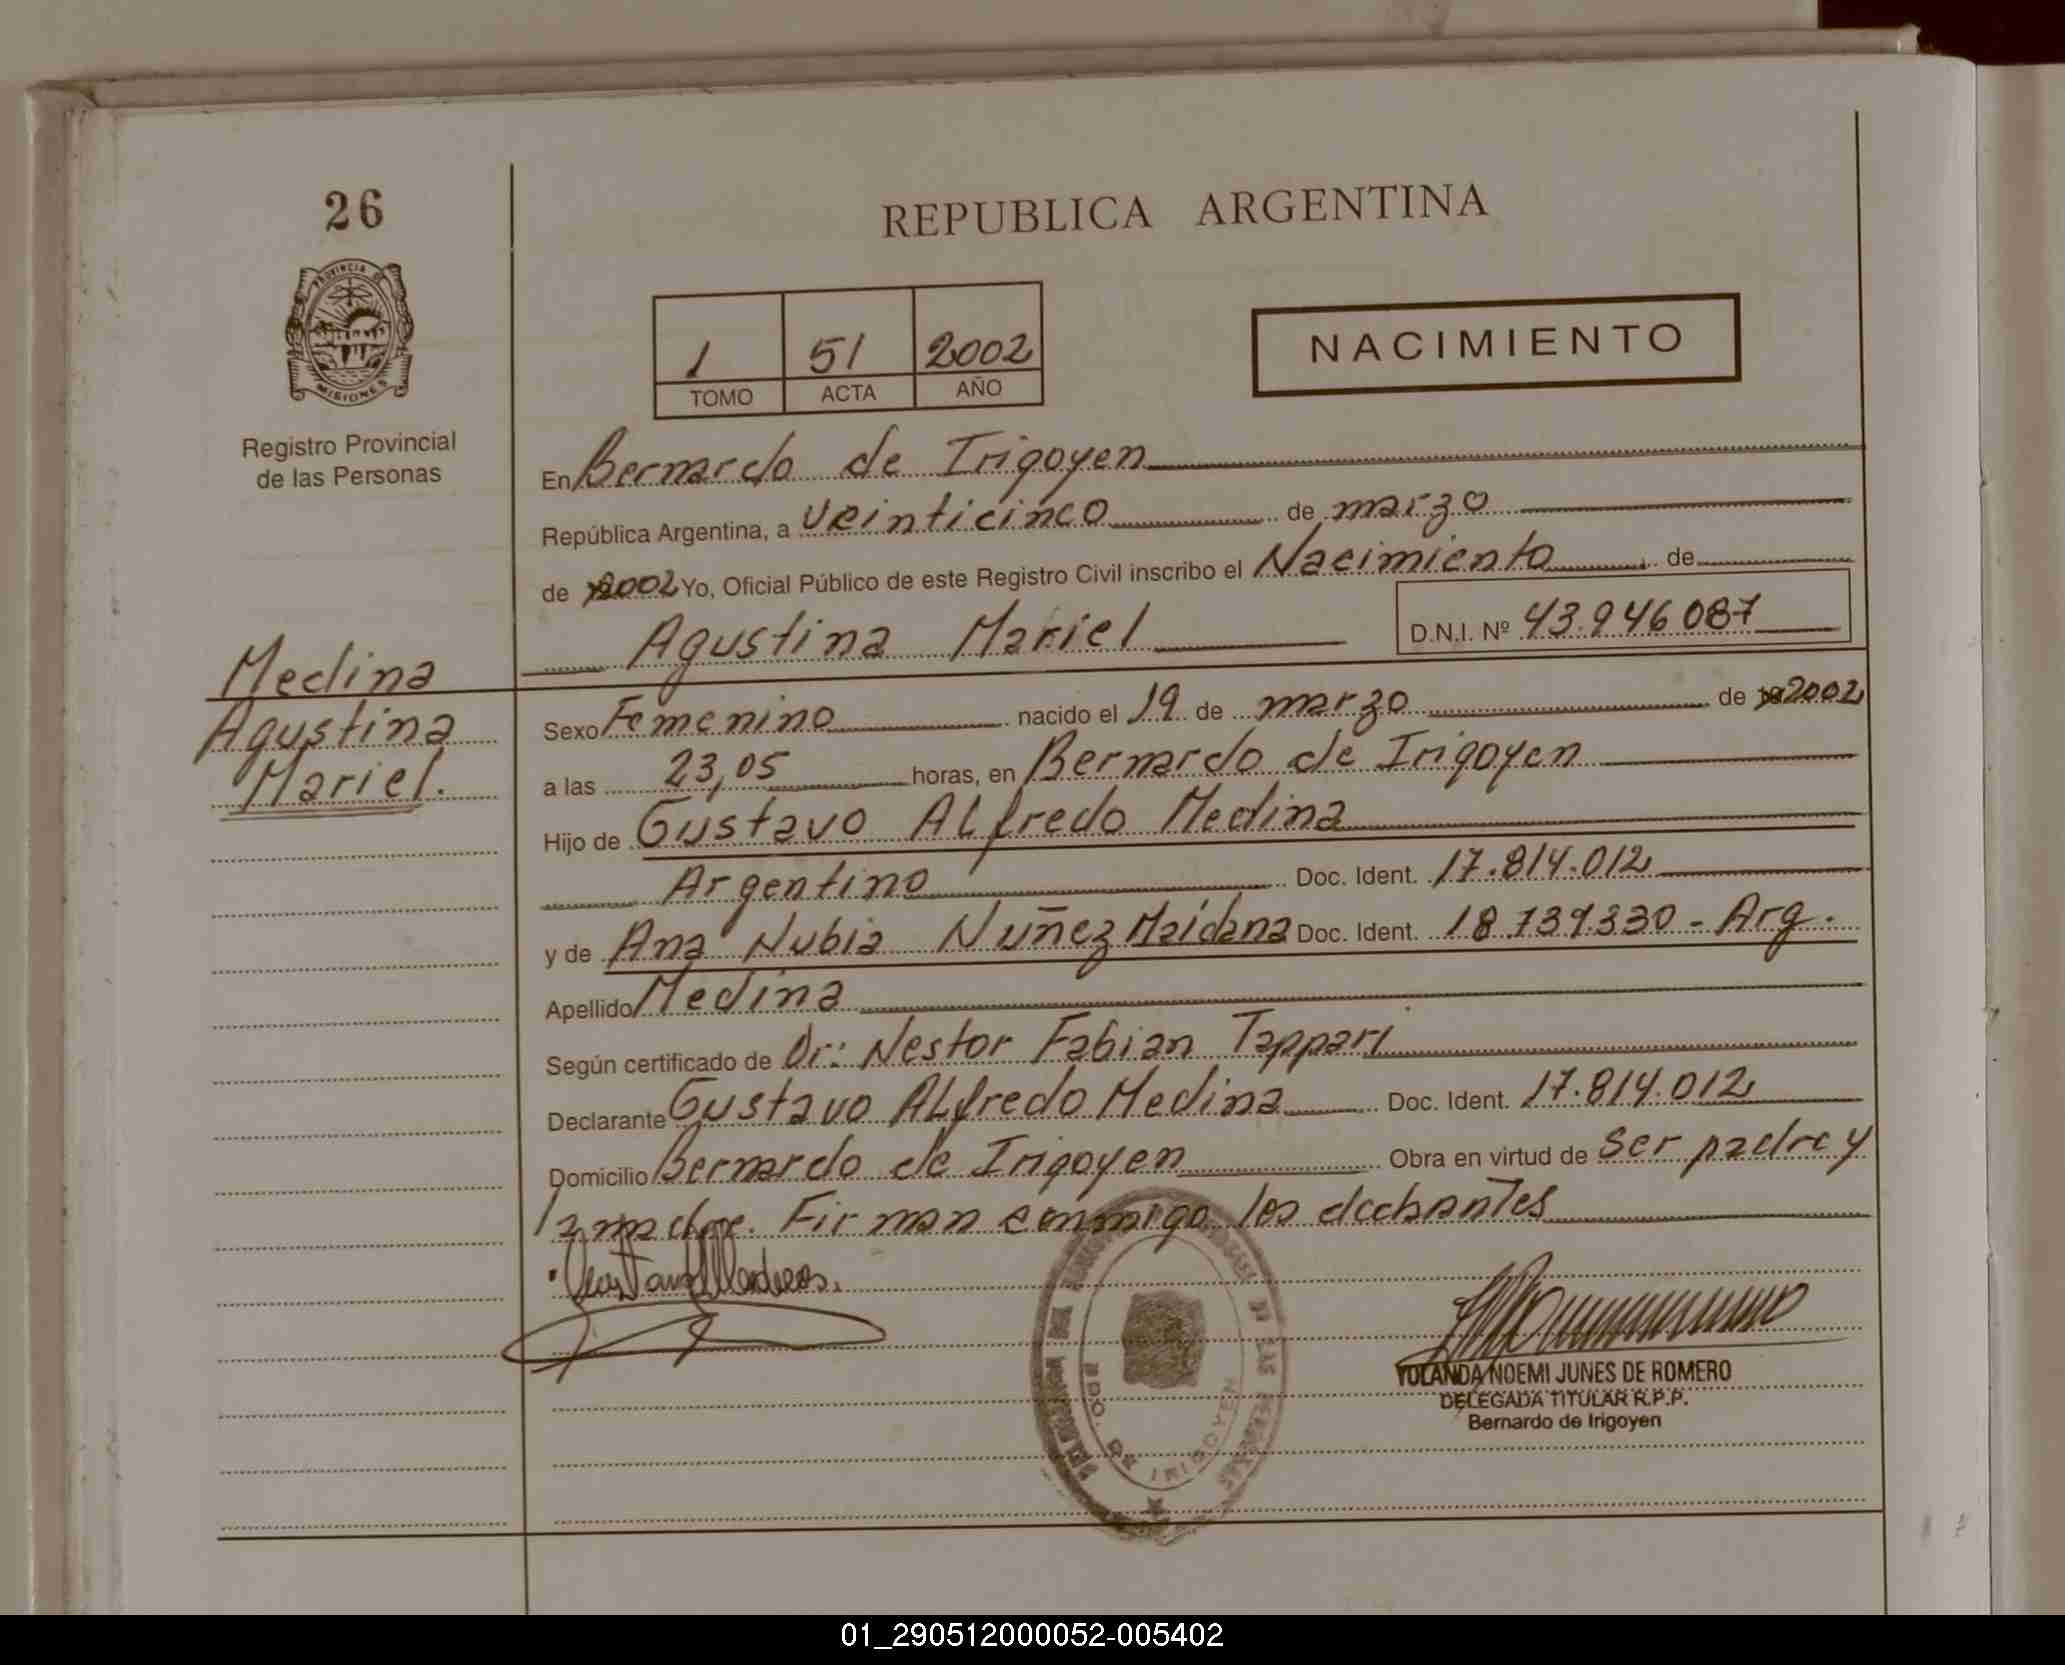 26
REPUBLICA ARGENTINA
PROVINCIA DE
MISIONES
Registro Provincial
de las Personas
1 51 2002
TOMO ACTA AÑO
NACIMIENTO
En Bernardo de Irigoyen
República Argentina, a veinticinco de marzo
de 2002 Yo, Oficial Público de este Registro Civil inscribo el Nacimiento de
Agustina Mariel D.N.I. Nº 43.946 087
Medina
Agustina
Mariel.
Sexo Femenino nacido el 19 de marzo de 2002
a las 23,05 horas, en Bernardo de Irigoyen
Hijo de Gustavo ALfredo Medina
Argentino Doc. Ident. 17.814.012
y de Ana Nubia Nuñez Maidana Doc. Ident. 18 739.330 - Arg.
Apellido Medina
Según certificado de Dr: Nestor Fabian Tappari
Declarante Gustavo ALfredo Medina Doc. Ident. 17.814.012
Domicilio Bernardo de Irigoyen Obra en virtud de ser padre y
la madre. Firman conmigo los
BDO. DE IRIGOYEN
YOLANDA NOEMI JUNES DE ROMERO
DELEGADA TITULAR R.P.P.
Bernardo de Irigoyen
01_290512000052-005402